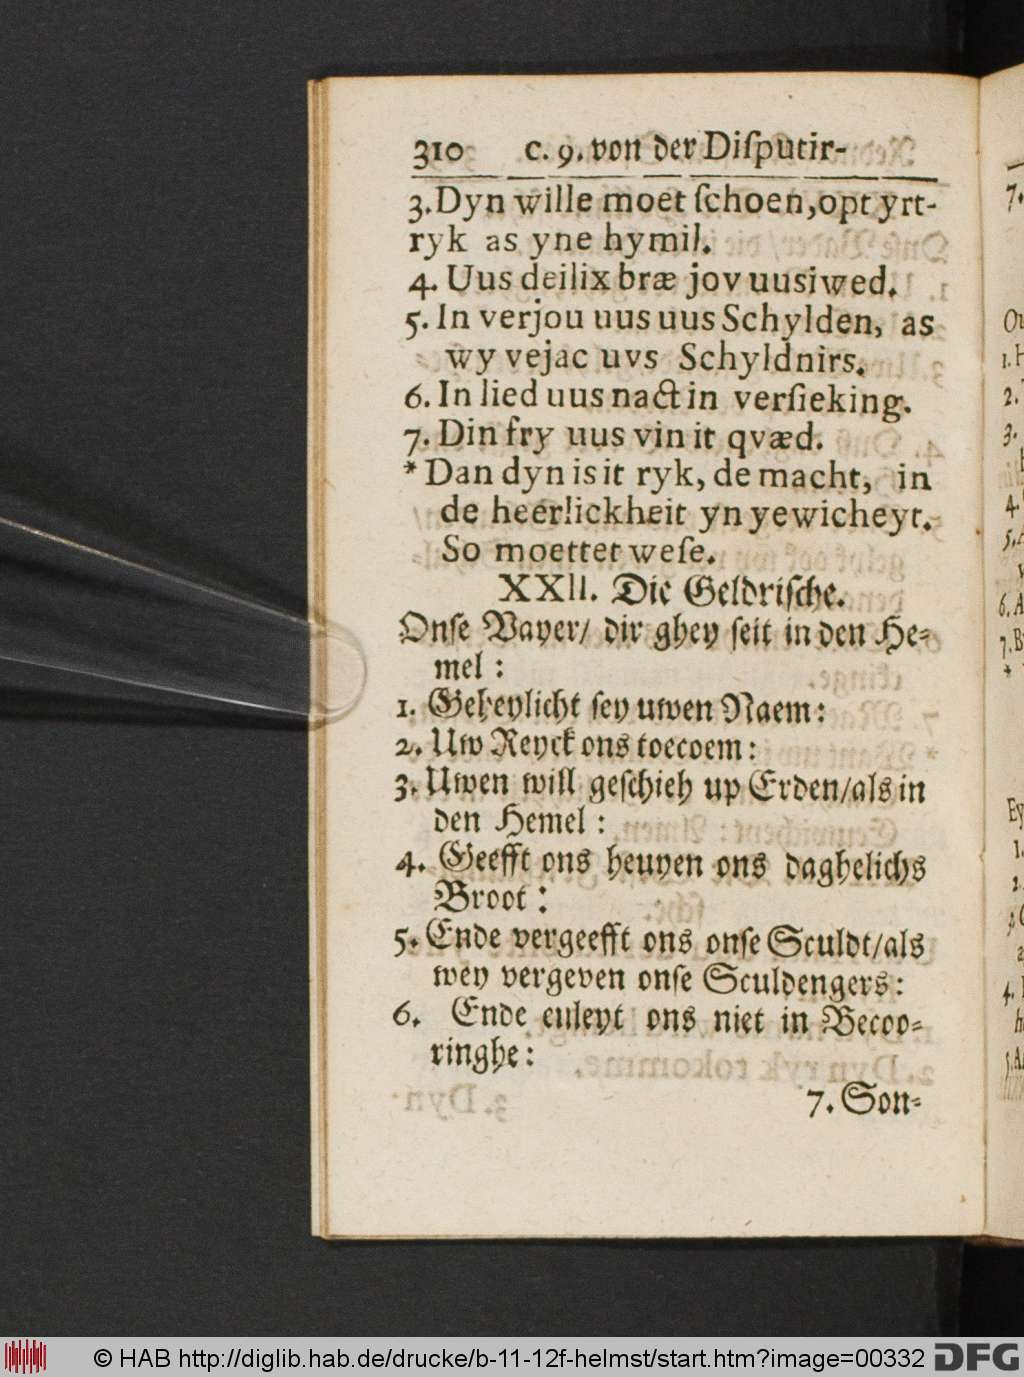 310 c. 9. von der Diſputir-
3. Dyn wille moet ſchoen, opt yrt-
ryk as yne hymil.
4. Uus deilix bræ jov uusiwed.
5. In verjou uus uus Schylden, as
wy vejac uvs Schyldnirs.
6. In lied uus nact in verſieking.
7. Din fry uus vin it qvæd.
* Dan dyn is it ryk, de macht, in
de heerlickheit yn yewicheyt.
So moettet weſe.
XXII. Die Geldriſche.
Onſe Vayer/ dir ghey ſeit in den He-
mel:
1. Geheylicht ſey uwen Naem:
2. Uw Reyck ons toecoem:
3. Uwen will geſchieh up Erden/ als in
den Hemel:
4. Geefft ons heuyen ons daghelichs
Broot:
5. Ende vergeefft ons onſe Sculdt/ als
wey vergeven onſe Sculdengers:
6. Ende euleyt ons niet in Becoo-
ringhe:
7. Son-
7.
1. H
2.
3.
4.
5.
6. A
7. B
*
Ey
1.
2.
4.
© HAB http://diglib.hab.de/drucke/b-11-12f-helmst/start.htm?image=00332 DFG